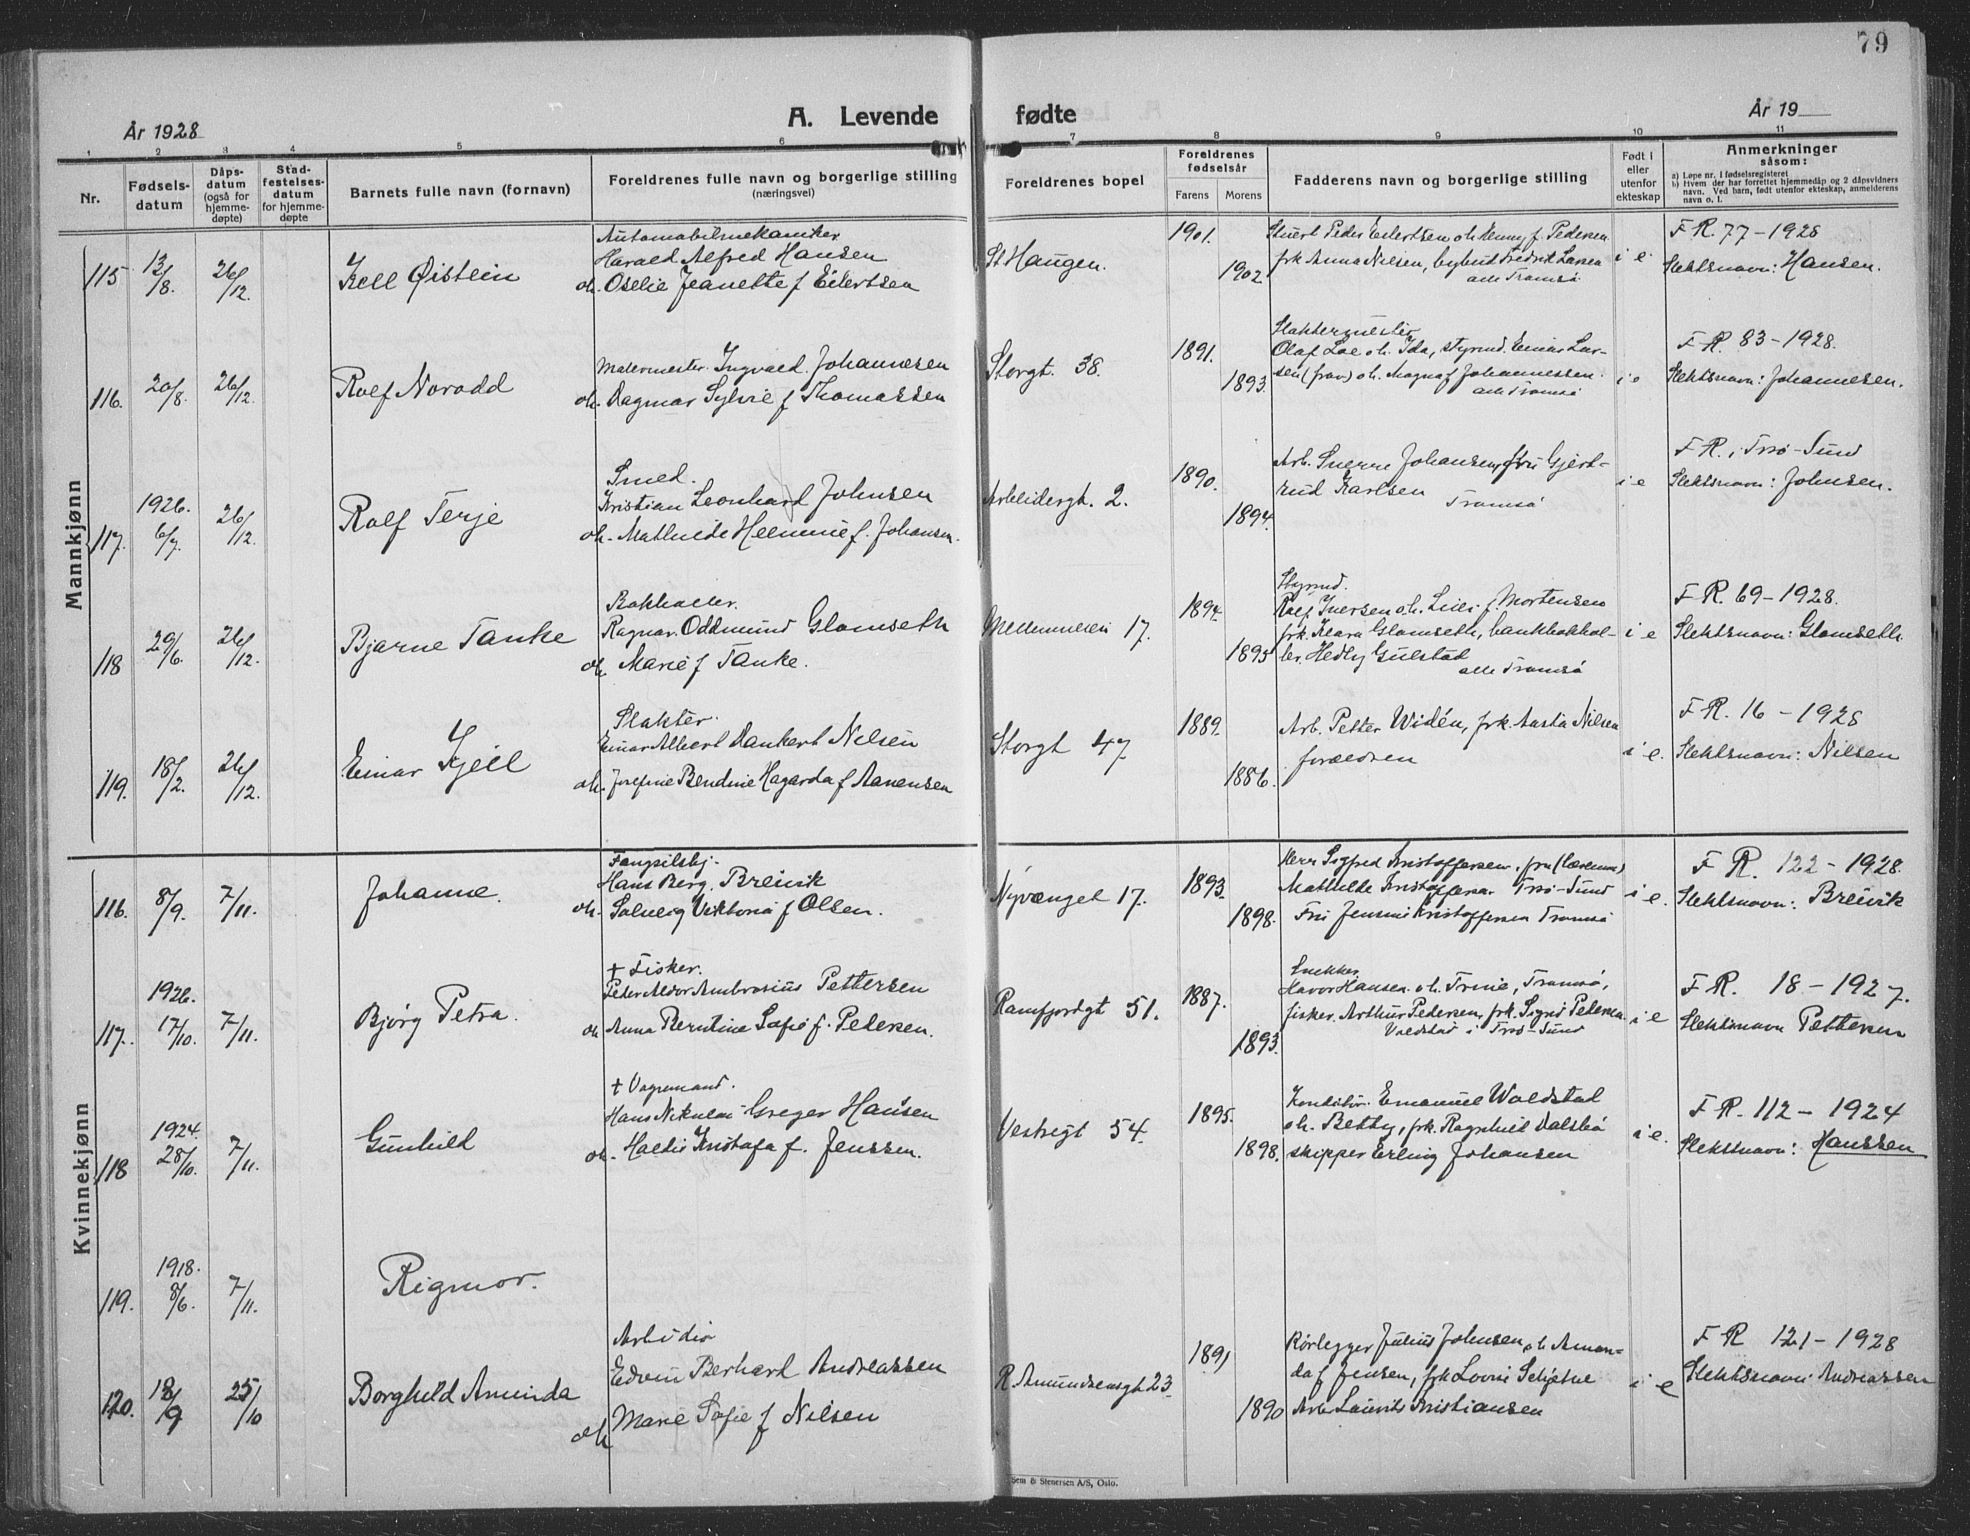 79
År 1928
A. Levende fødte
År 19
1 2 3 4 5 6 7 8 9 10 11
Nr.
Fødsels-
datum
Dåps-
datum
(også for
hjemme-
døpte)
Stad-
festelses-
datum
for hjemme-
døpte
Barnets fulle navn (fornavn)
Foreldrenes fulle navn og borgerlige stilling
(næringsvei)
Foreldrenes bopel
Foreldrenes
fødselsår
Farens Morens
Fadderens navn og borgerlige stilling
Født i
eller
utenfor
ekteskap
Anmerkninger
såsom:
a) Løpe nr. i fødselsregisteret
b) Hvem der har forrettet hjemmedåp og 2 dåpsvidners
navn. Ved barn, født utenfor ekteskap, anmelderens
navn o. l.
Mannkjønn
115 12/8. 26/12. Kell Øistein
Automobilmekaniker
Harald Alfred Hansen
oh. Oselie Jeanette f Eilertsen
St Haugen.
1901.
1902
Stuert Peder Eilertsen oh. Jenny f. Pedersen
frk Anna Nielsen, bybud Fredrik Larsen
alle Tromsø
i e.
F R. 77 - 1928
Slektsnavn: Hansen.
116. 20/8. 26/12. Rolf Norodd
Malermester Ingvald Johannesen
oh. Dagmar Sylvie f Thomassen
Storgt. 38.
1891.
1893.
Slaktermester
Olaf Loe o h. Ida, styrmd. Einar Lar-
sen (frav) o h. Magna f Johannessen.
alle Tromsø
i e
F R. 83 - 1928.
Slektsnavn: Johannesen.
117. 1926. 6/7. 26/12. Rolf Terje
Smed.
Kristian Leonhard Johnsen
oh. Mathilde Helmine f. Johansen.
Arbeidergt. 2.
1890.
1894.
Arb. Sverre Johansen, fru Gjert-
rud Karlsen
Tromsø
i e
F R. i Trsø-Sund
Slektsnavn: Johnsen.
118 29/6. 26/12. Bjarne Tanke
Bokholder.
Ragnar Oddmund Glomseth
oh Marie f Tanke.
Mellemveien 17.
1894.
1895
Styrmd.
Rolf Iversen o.h. f. Mortensen
frk. Klara Glomseth, bankbokhol-
der. Hedly Gulstad
alle Tromsø
i e
F R. 69 - 1928.
Slektsnavn: Glomseth.
119. 18/2. 26/12. Einar Kjell
Slakter.
Einar Albert Dankert Nilsen
oh. Josefine Bendine Hagarda f Aanensen
Storgt 47
1889.
1886.
Arb. Petter Widén, frk. Aasta Nilsen
foreldren
i e.
F R. 16 - 1928
Slektsnavn: Nilsen
Kvinnekjønn
116. 8/9. 7/11. Johanne.
Fangstilsbj.
Hans Berg. Breivik
oh. Solveig Viktoria f Olsen.
Nyvænget 17.
1893.
1898.
Herr Sigfred Kristoffersen, fru
Mathilde Kristoffersen Trsø-Sund
Fru Jensine Kristoffersen Tromsø
i e.
F R. 122 - 1928.
Slektsnavn: Breivik
117. 1926. 17/10. 7/11. Bjørg Petra.
+ Fisker.
Peder Aldor Ambrosius Pettersen
oh Anna Berntine Sofie f. Pedersen.
Ramfjordgt 51.
1887.
1893.
Snekker
Havor Hansen o.h. Trine, Tromsø,
fisker Arthur Pedersen, frk. Sigrid Pedersen
Voldstad i Trsø-Sund
i e
F R. 18 - 1927.
Slektsnavn Pettersen
118 1924. 28/10. 7/11. Gunhild
+ Vognmand.
Hans Nikolai Greger Hansen
oh. Haldis Kristofa f. Jenssen.
Vestregt 54.
1895.
1898.
Konditor. Emanuel Woldstad
o h. Betty, frk. Ragnhild Dalsbø
skipper Erling Johansen
i e.
F R. 112 - 1924
Slektsnavn: Hanssen
119. 1918. 8/6. 7/11. Rigmor.
120. 18/9 25/10 Borghild Aminda
Arbeider
Edvin Berhard Andreassen
oh Marie Sofie f Nilsen
R. Amundsensgt 23.
1891
1890
Rørlegger Julius Johnsen, o h Aman-
da f Jensen, frk Lovise Schjetne
Arb Lauritz Kristiansen
i e
F R 121 - 1928
Slektsnavn. Andreassen
Sem & Stenersen A/S, Oslo.